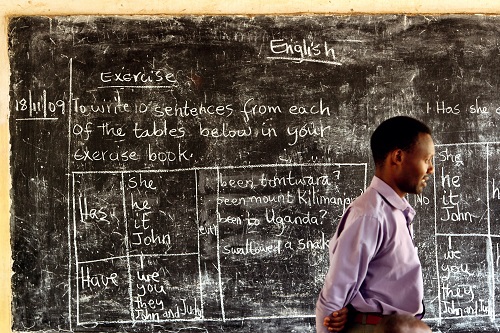 English
Exercise
18/11/09 To write 10 sentences from each
of the tables below in your
exercise book.
1 Has she
Has
She
he
it
John
ever
been to
seen mount Kilimanjaro
been to Uganda?
swallowed a snak
Have
we
you
they
John and Judy
NO
She
he
it
John
I
we
you
they
John and